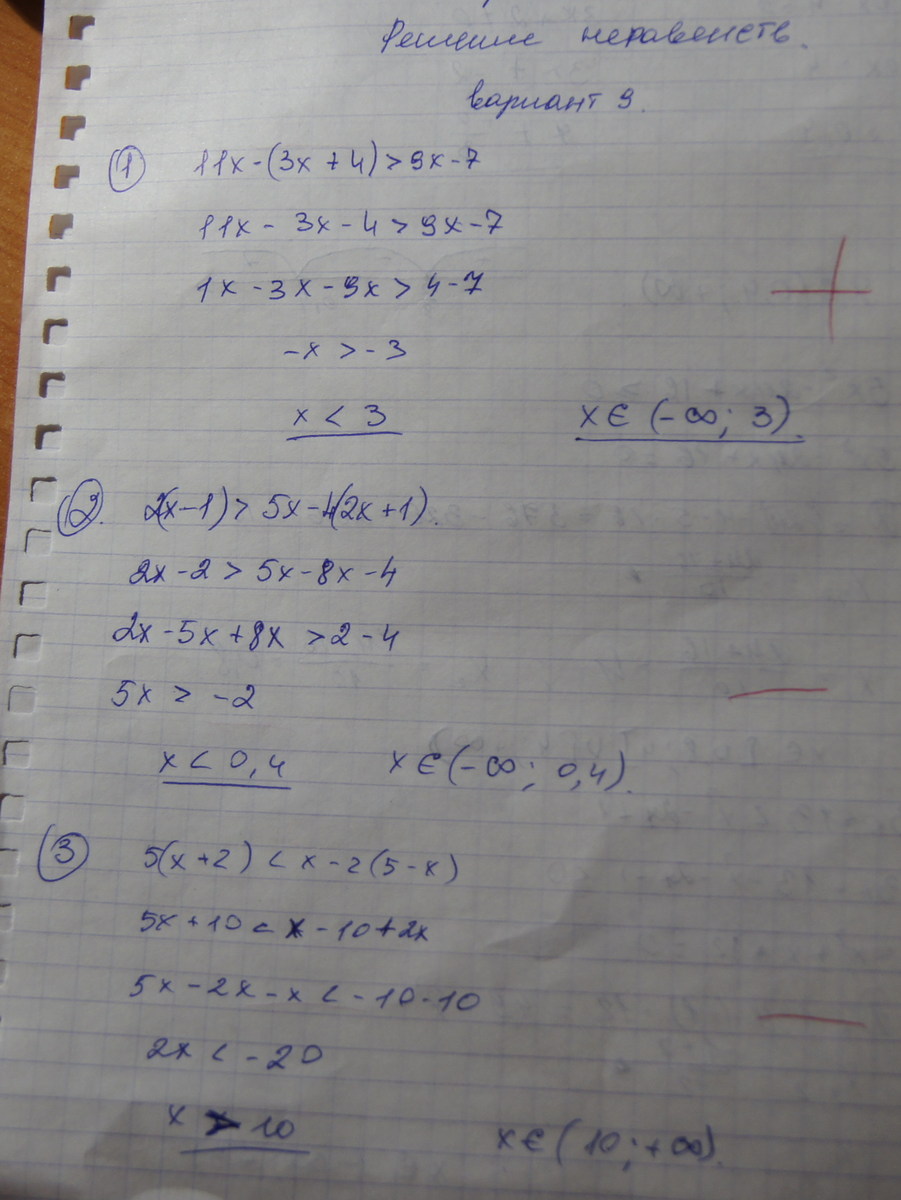 Решение неравенств.
вариант 9.
① 11x-(3x+4)>9x-7
11x-3x-4>9x-7
1x-3x-9x>4-7
-x>-3
x<3 x∈(-∞; 3).
②. 2(x-1)>5x-4(2x+1).
2x-2>5x-8x-4
2x-5x+8x>2-4
5x>-2
x<0,4 x∈(-∞; 0,4).
③ 5(x+2)<x-2(5-x)
5x+10<x-10+2x
5x-2x-x<-10-10
2x<-20
x>10 x∈(10;+∞).